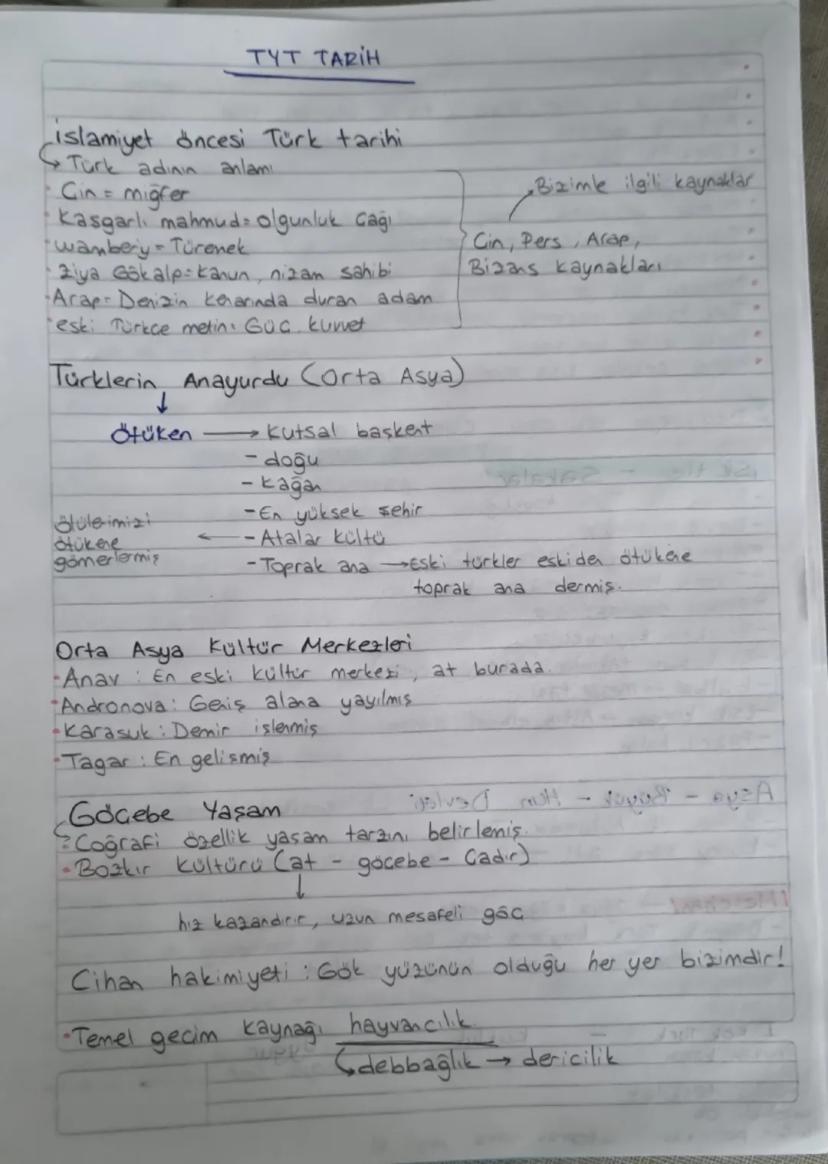 TYT TARİH
İslamiyet öncesi Türk tarihi
↳ Türk adının anlamı
• Çin = miğfer
• Kaşgarlı mahmud = olgunluk çağı
• wambery = Türemek
• Ziya Gökalp = kanun, nizam sahibi
• Arap = Denizin kenarında duran adam
• eski Türkçe metin: Güç kuvvet
Bizimle ilgili kaynaklar
Çin, Pers, Arap,
Bizans kaynakları
Türklerin Anayurdu (Orta Asya)
↓
Ötüken → Kutsal başkent
- doğu
- Kağan
- En yüksek şehir
- Atalar kültü
ölülerimizi
ötükene
gömerlermiş
←
- Toprak ana → Eski türkler eskiden ötükene
toprak ana dermiş.
Orta Asya Kültür Merkezleri
- Anav : En eski kültür merkezi, at burada.
• Andronova : Geniş alana yayılmış
• Karasuk : Demir işlenmiş
• Tagar : En gelişmiş
Göçebe Yaşam
Coğrafi özellik yaşam tarzını belirlemiş.
• Bozkır kültürü (at - göçebe - Çadır)
↓
hız kazandırır, uzun mesafeli göç
Cihan hakimiyeti : Gök yüzünün olduğu her yer bizimdir!
• Temel geçim kaynağı hayvancılık
↳ debbağlık → dericilik